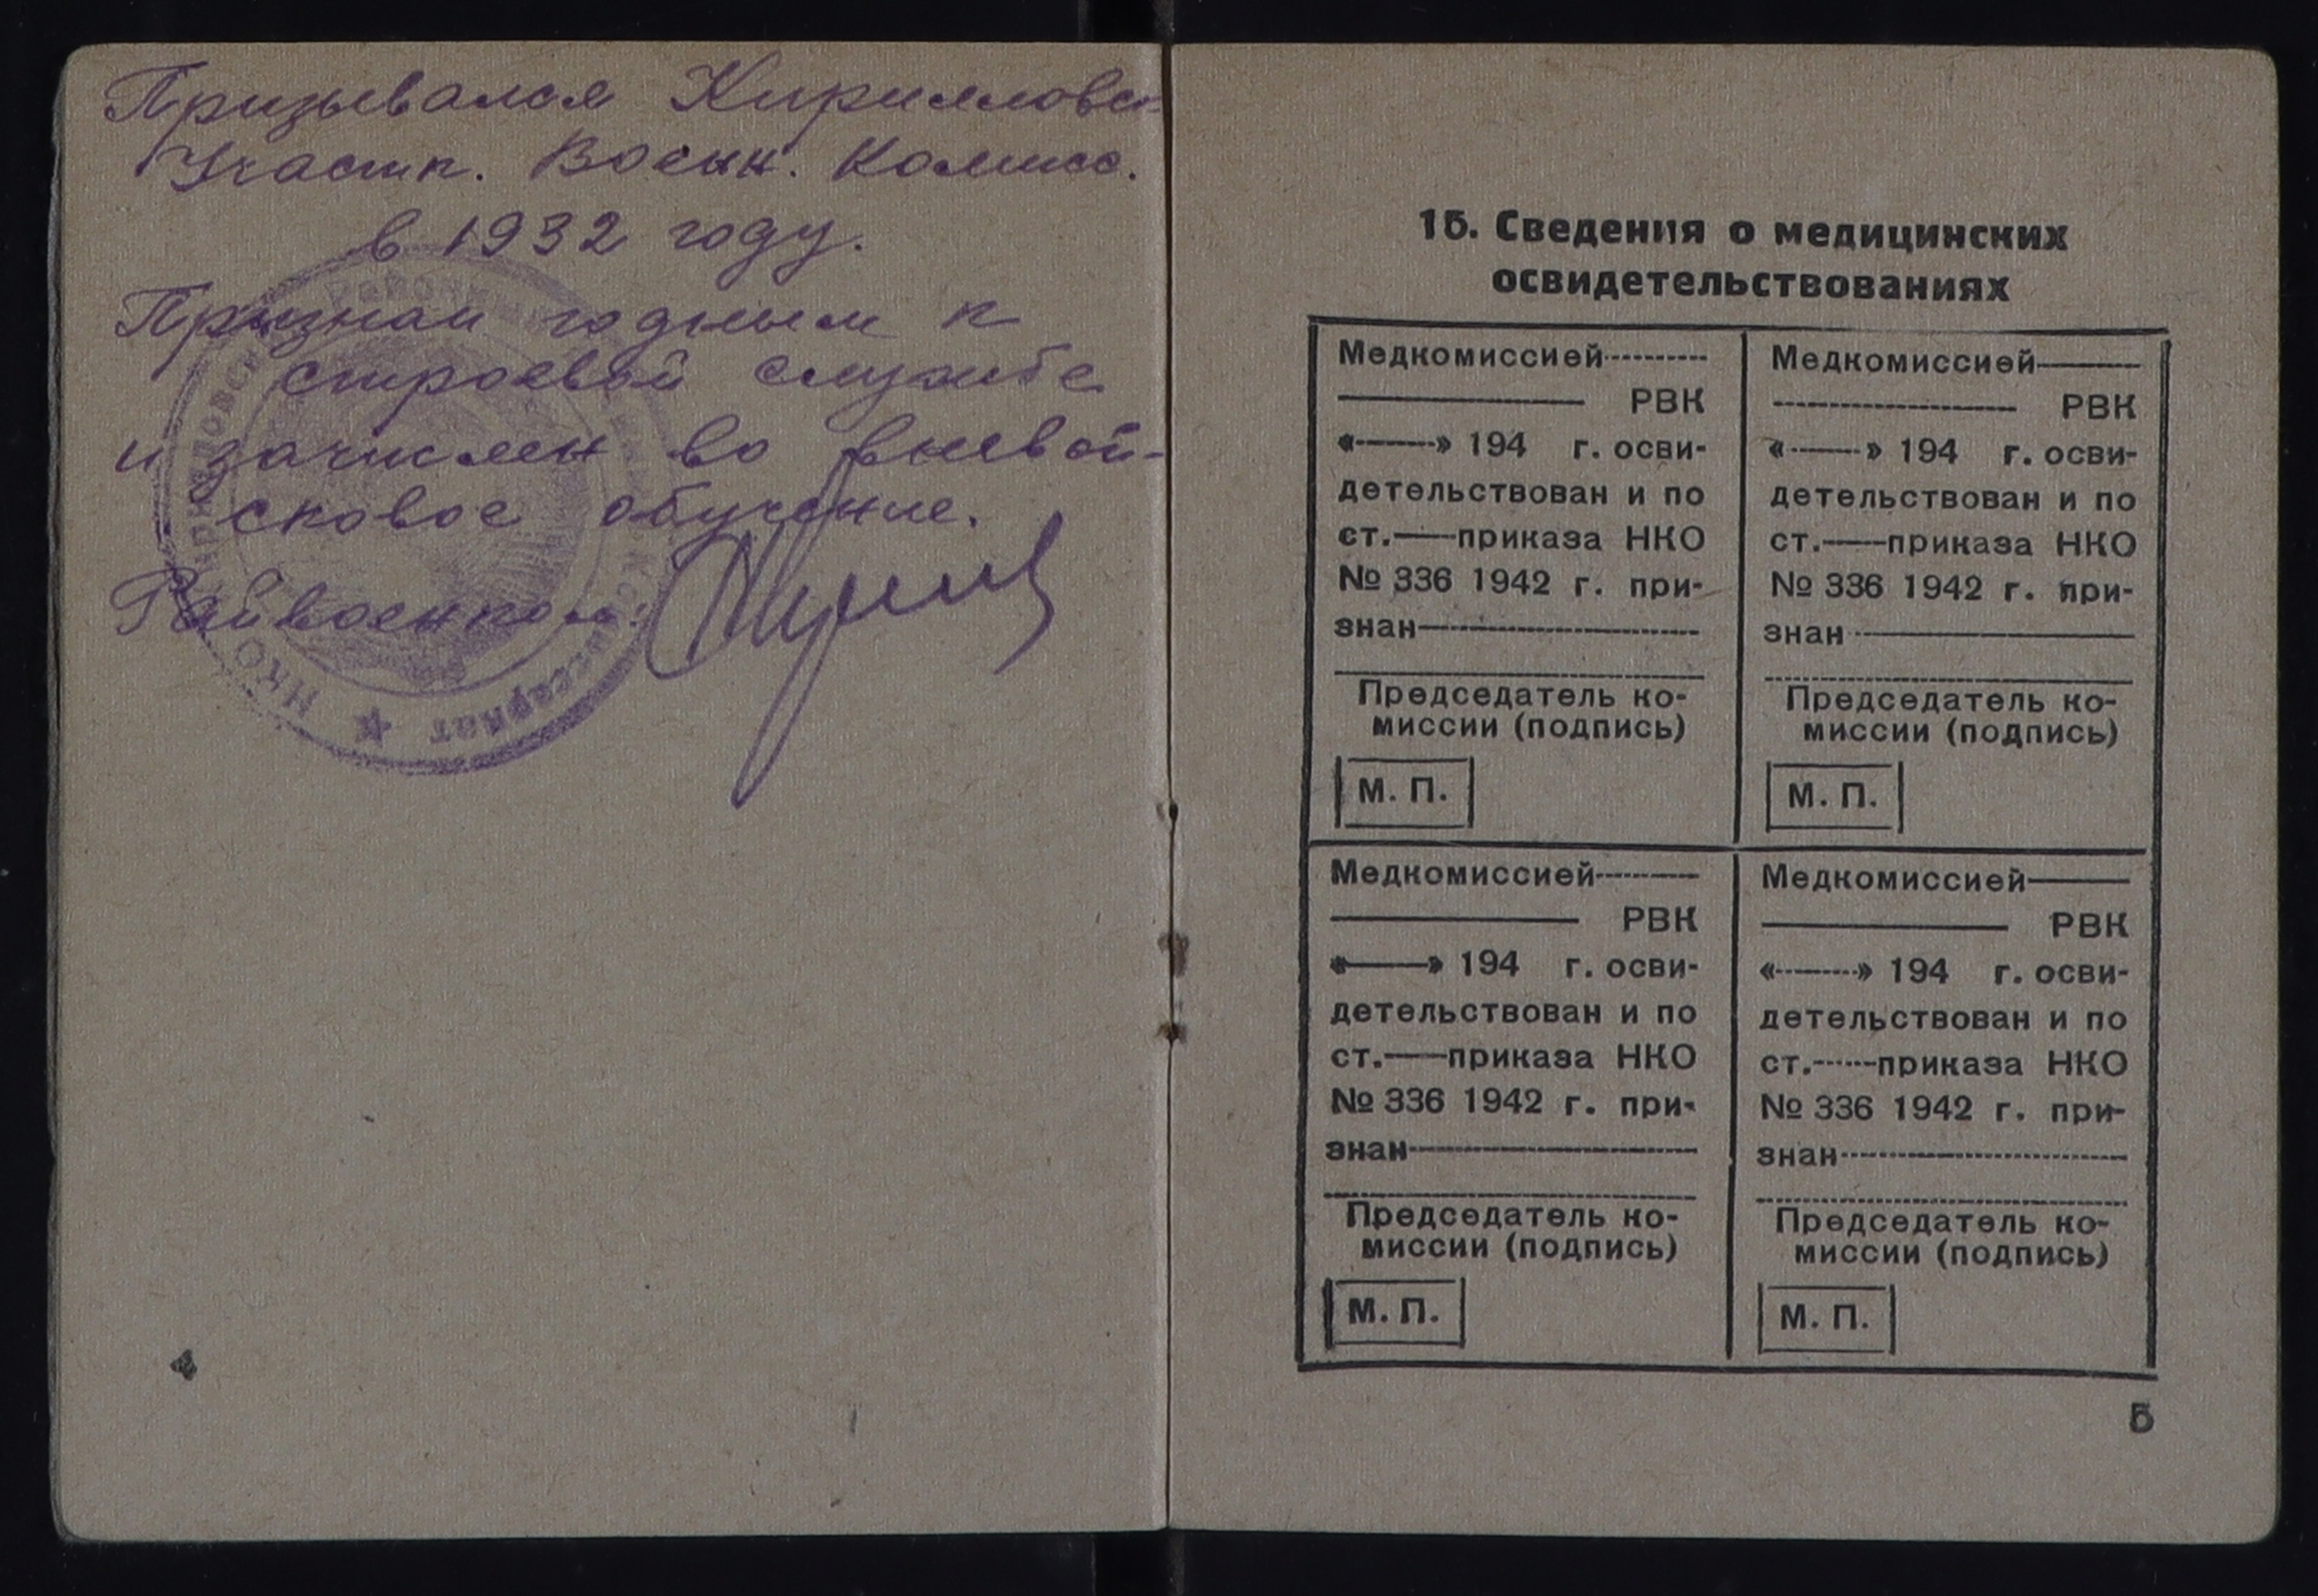 Призывался Кирилловс.
Участк. Военн. Комисс.
в 1932 году.
Признан годным к
строевой службе
и зачислен во вневой-
сковое обучение.
Райвоенком:
НКО ★
4
15. Сведения о медицинских
освидетельствованиях
Медкомиссией
РВК
« » 194 г. осви-
детельствован и по
ст. приказа НКО
№ 336 1942 г. при-
знан
Председатель ко-
миссии (подпись)
М. П.
Медкомиссией
РВК
« » 194 г. осви-
детельствован и по
ст. приказа НКО
№ 336 1942 г. при-
знан
Председатель ко-
миссии (подпись)
М. П.
Медкомиссией
РВК
« » 194 г. осви-
детельствован и по
ст. приказа НКО
№ 336 1942 г. при-
знан
Председатель ко-
миссии (подпись)
М. П.
Медкомиссией
РВК
« » 194 г. осви-
детельствован и по
ст. приказа НКО
№ 336 1942 г. при-
знан
Председатель ко-
миссии (подпись)
М. П.
5